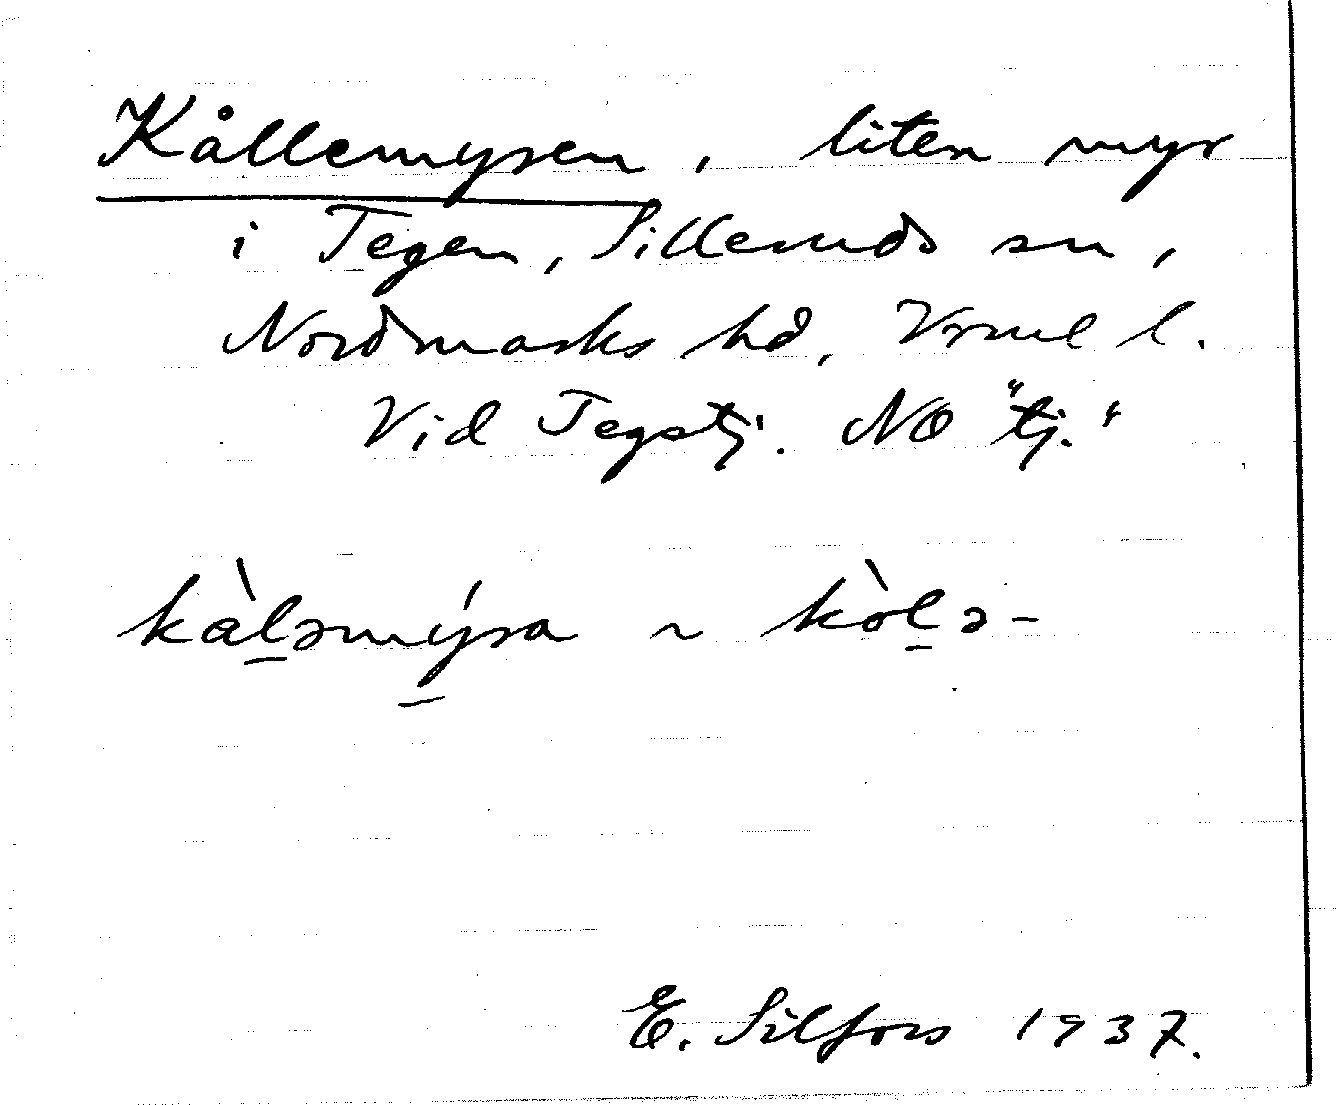 Kållemysen, liten myr
i Tegen, Silleruds sn,
Nordmarks hd, Vrml l.
Vid Tegstj. NO "tj."
kàl̲əmýsa ~ kòl̲ə-
E. Silfors 1937.